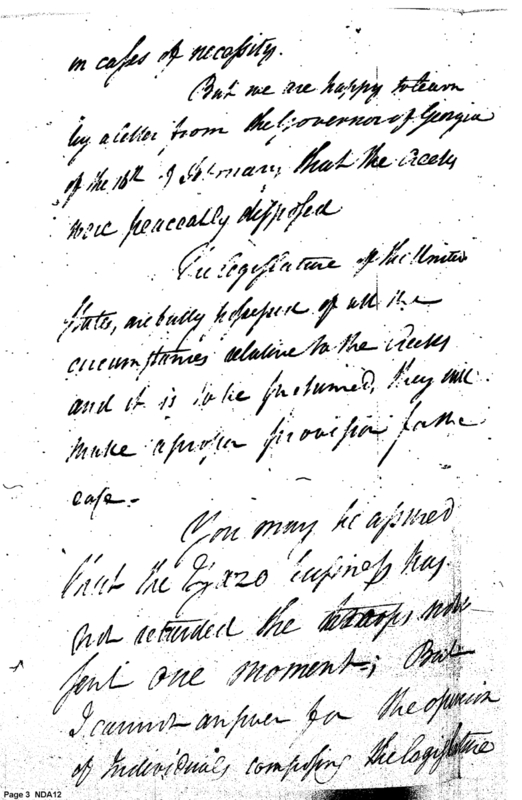 in cases of necessity.
But we are happy to learn
by a letter from the Governor of Georgia
of the 18th of February, that the Creeks
were peaceably disposed
The legislature of the United
States, are fully possessed of all the
circumstances relative to the Creeks
and it is to be presumed, they will
make a proper provision for the
case.
You may be assured
that the Yazo business has
not retarded the troops now
sent one moment; But
I cannot answer for the opinion
of Individuals composing the legislature
Page 3 NDA12